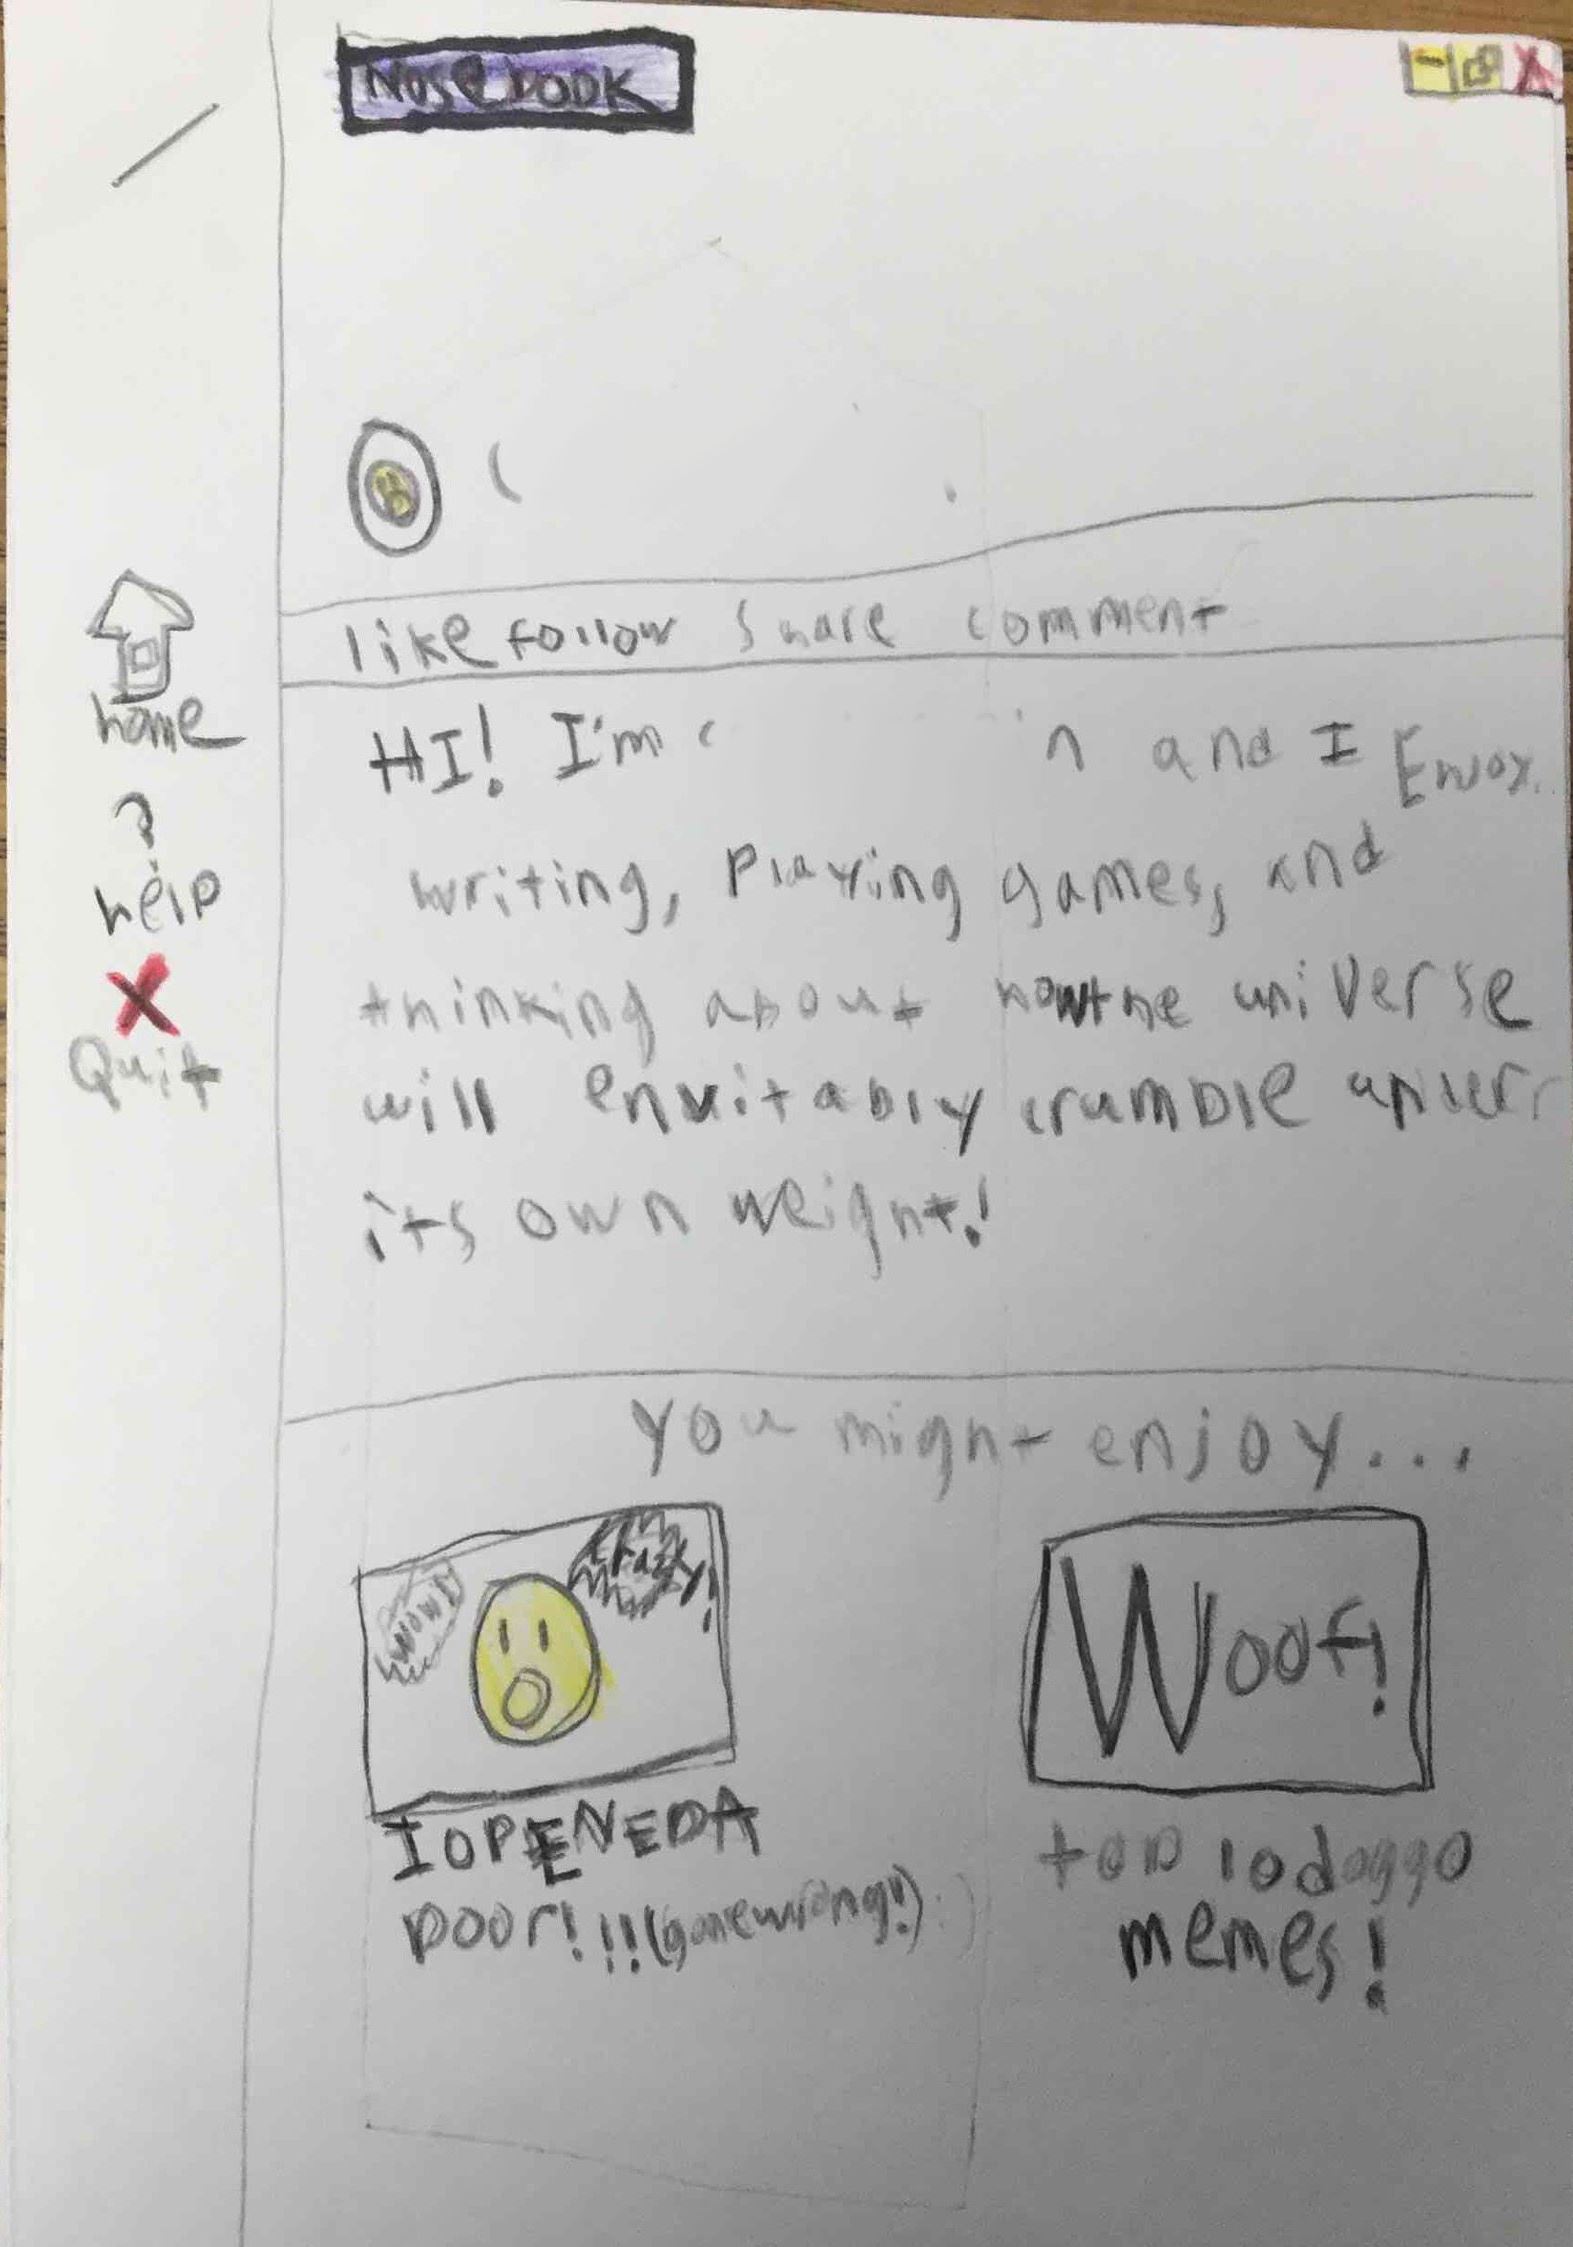 Nosebook
home
help
Quit
like follow share comment
HI! I'm and I Enjoy
writing, playing games, and
thinking about how the universe
will envitably crumble under
its own weight!
you might enjoy...
wow!
crazy!
I OPENED A
DOOR!!!!(gone wrong!):)
Woof!
top 10 doggo
memes!